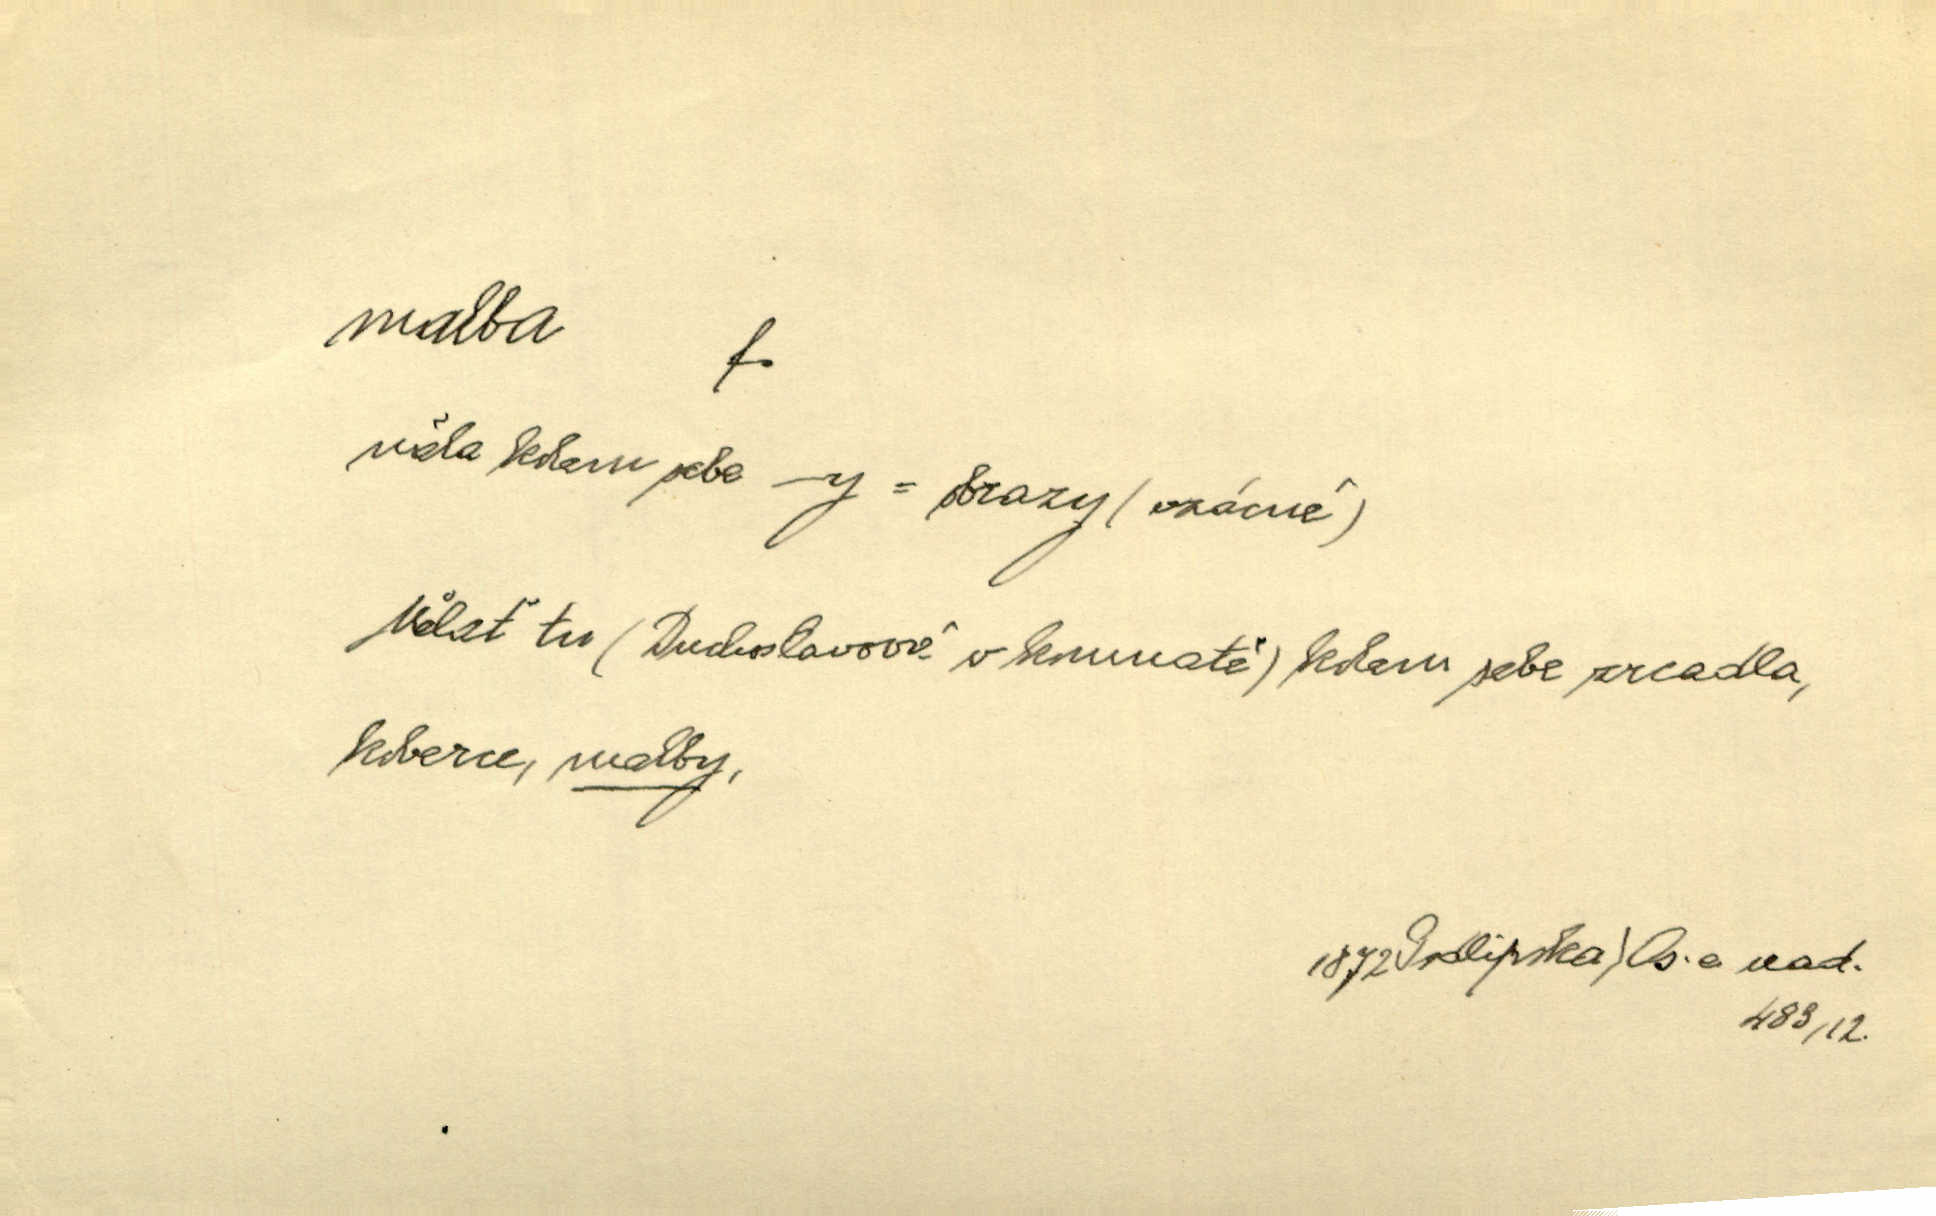 malba
f.
měla kolem sebe –y = obrazy (vzácné)
tu (Duchoslavově v komnatě) kolem sebe zrcadla,
koberce, malby,
1872 Podlipská) Os. a nad.
483,12.